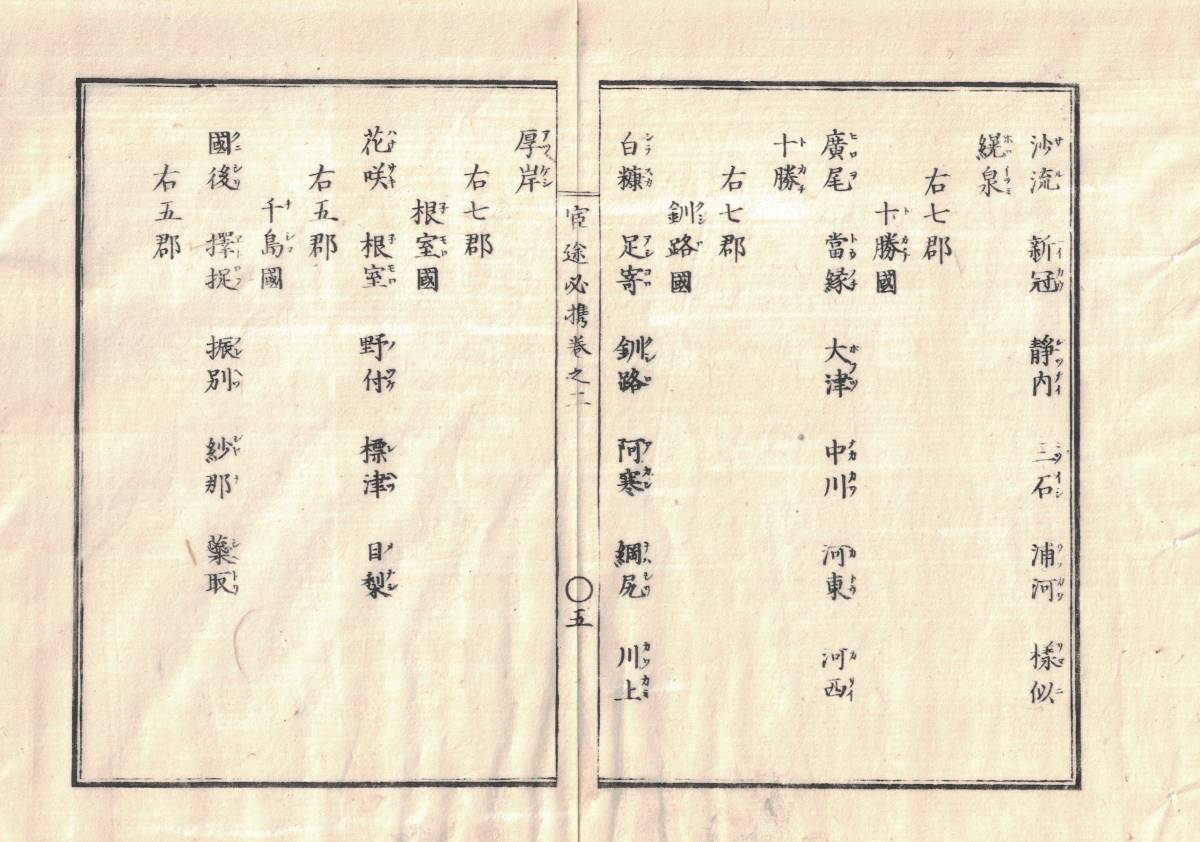 沙流 新冠 静内 三石 浦河 樣似
幌泉
右七郡
十勝國
廣尾 當縁 大津 中川 河東 河西
十勝
右七郡
釧路國
白糠 足寄 釧路 阿寒 網尻 川上
官途必携卷之二 〇五
厚岸
右七郡
根室國
花咲 根室 野付 標津 目梨
右五郡
千島國
國後 擇捉 振別 紗那 蘂取
右五郡